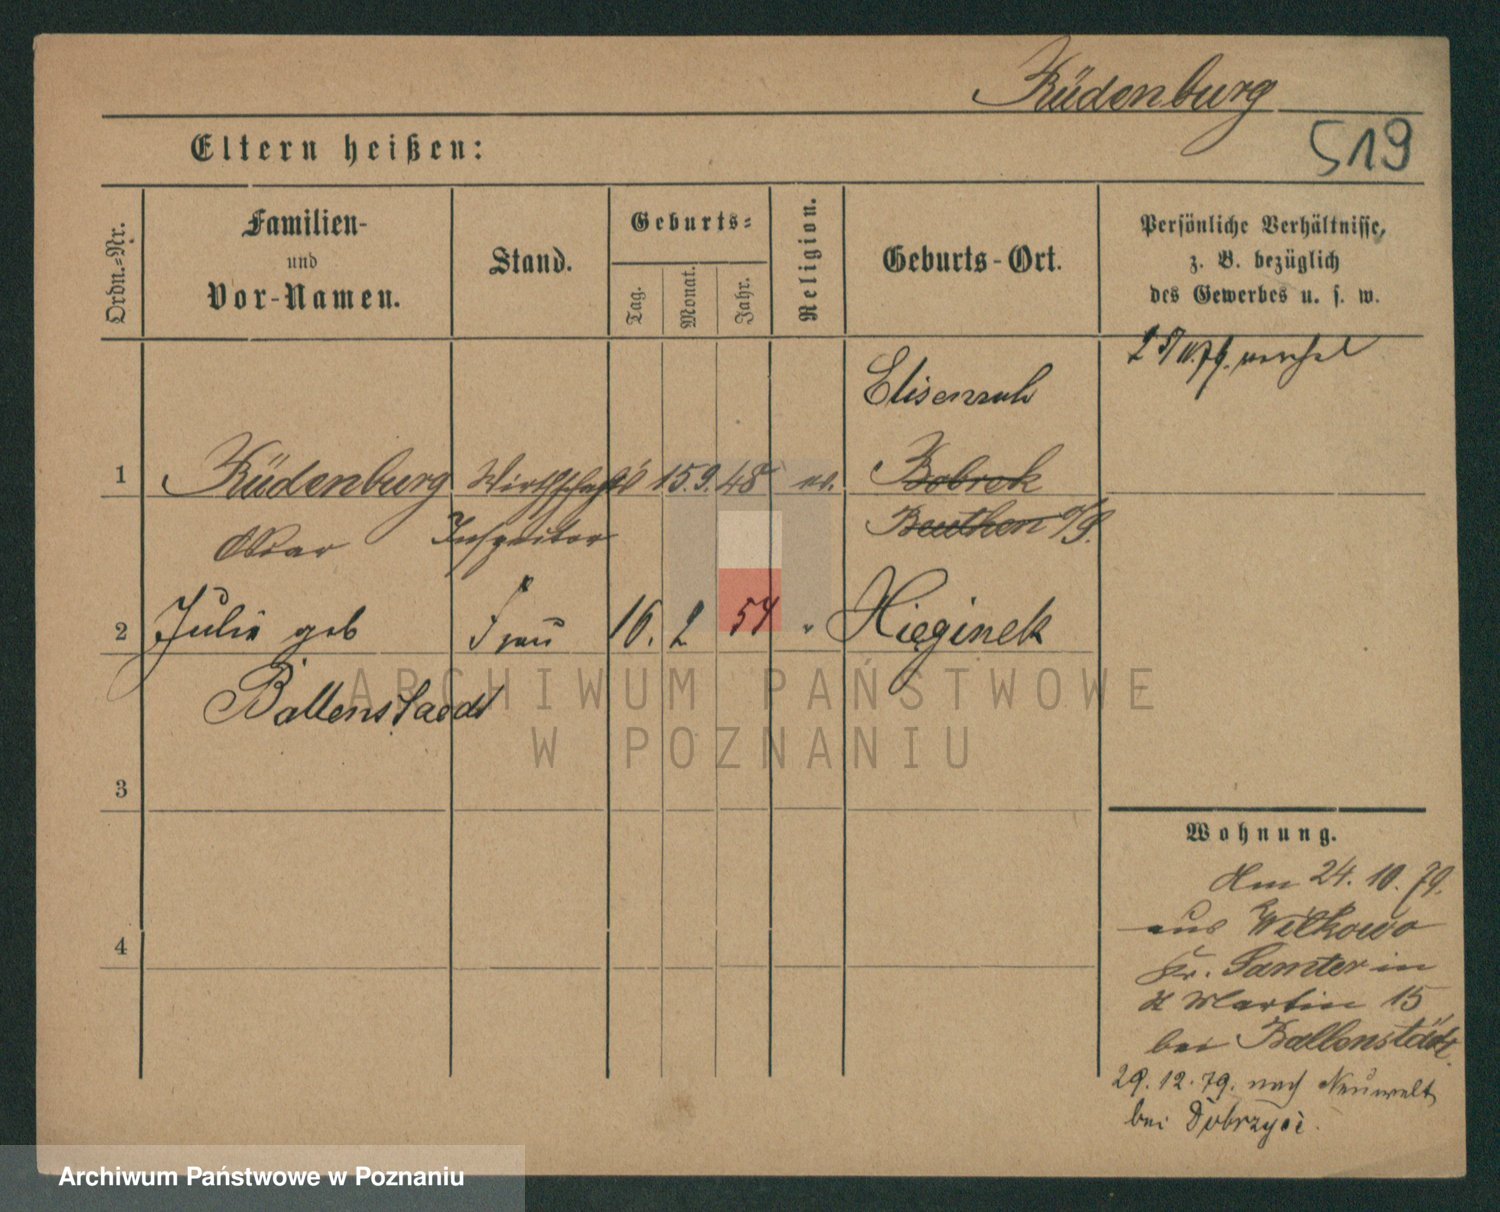 Rüdenburg
519
Eltern heißen:
Ordn.-Nr.
Familien-
und
Vor-Namen.
Stand.
Geburts-
Tag.
Monat.
Jahr.
Religion.
Geburts-Ort.
Persönliche Verhältnisse,
z. B. bezüglich
des Gewerbes u. s. w.
Elisenruh
1 Rüdenburg Wirthschafts 15.9.48 ev. Bobrek
Oscar Inspector Beuthen O/S.
2 Julie geb Frau 16. 2 54 " Hieginek
Ballenstaedt
ARCHIWUM PAŃSTWOWE
W POZNANIU
3
4
Wohnung.
Am 24. 10. 79.
aus Wilkowo
Kr. Samter in
St Martin 15
bei Ballenstädt.
29. 12. 79. nach Neuwelt
bei Dobrzyci.
Archiwum Państwowe w Poznaniu